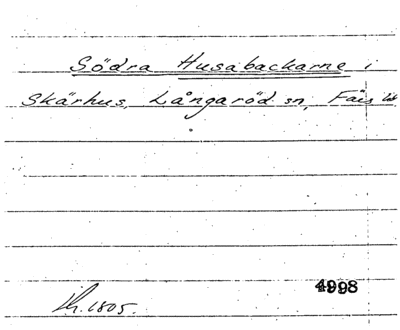 Södra Husabackarne i
Skärhus, Långaröd sn, Färs
4998
1805.